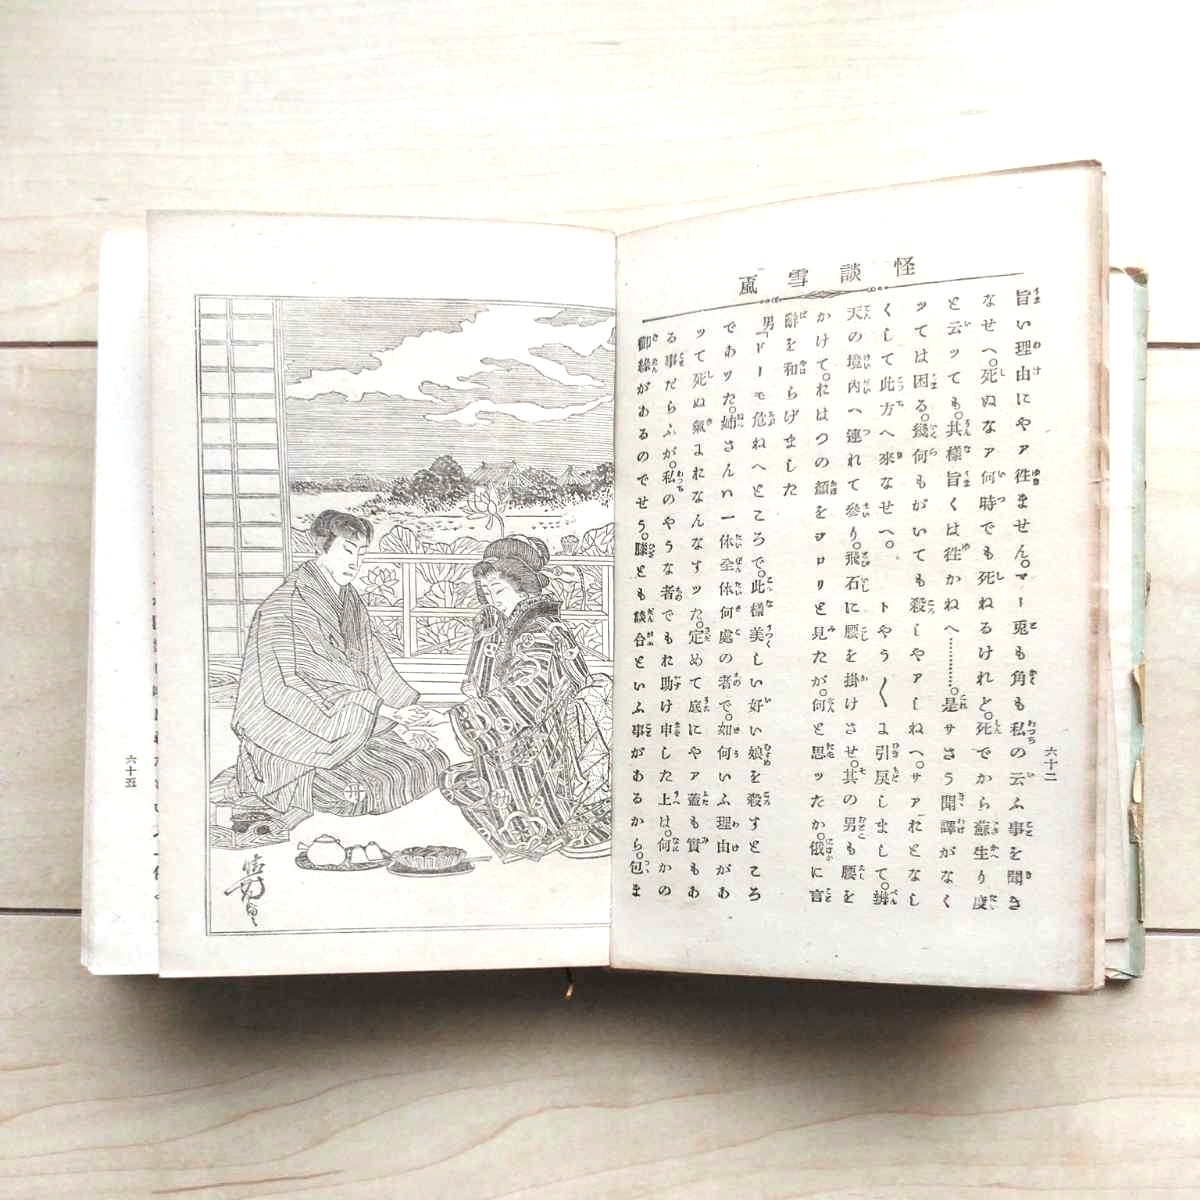 怪談雪颪
六十二
旨い理由にやァ徃ません。マー兎も角も私の云ふ事を聞き
なせへ。死ぬなァ何時でも死ねるけれど。死でから蘇生り度
と云ッても。其樣旨くは徃かねへ…………。是サさう聞譯がなく
ッては困る。幾何もがいても殺しやァしねへ。サァおとなし
くして此方へ來なせへ。　トやう〱よ引戻しまして。辨
天の境内へ連れて參り。飛石に腰を掛けさせ。其の男も腰を
かけて。おはつの顏をヂロリと見たが。何と思ッたか。俄に言
辭を和らげました
男「ドーモ危ねへところで。此樣美しい好い娘を殺すところ
であッた。姉さんハ一体全体何處の者で。如何いふ理由があ
ッて死ぬ氣よおなんなすッた。定めて底にやァ蓋も實もあ
る事だらふが。私のやうな者でもお助け申した上は。何かの
御縁があるのでせう。膝とも談合といふ事があるから。包ま
六十五